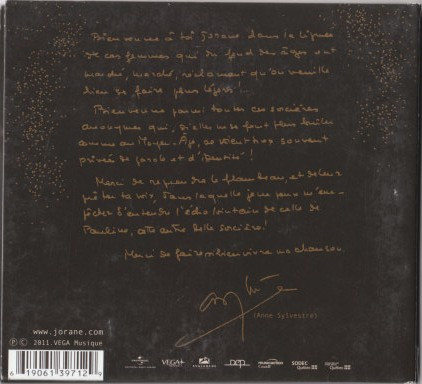 Bienvenue à toi Jorane dans la lignée
de ces femmes qui du fond des âges ont
marché, marché, réclamant qu'on veuille
bien se faire plus légers !
Bienvenue parmi toutes ces sorcières
qui, si elles ne se font plus brûler
comme au Moyen-Âge, se voient trop souvent
privées de parole et d'identité !
Merci de reprendre le flambeau, et de leur
prêter ta voix, dans laquelle je ne peux m'em-
pêcher d'entendre l'écho lointain de celle de
Pauline, cette autre belle sorcière !
Merci de faire si bien vivre ma chanson.
(Anne Sylvestre)
www.jorane.com
Ⓟ © 2011 VEGA Musique
6 19061 39712 9
UNIVERSAL VEGA MUSICACTION Canada SODEC Québec Québec